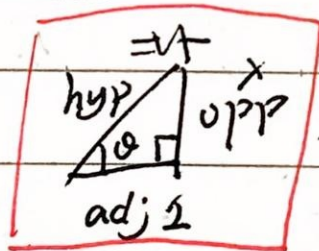 hyp
x
opp
θ
adj 1